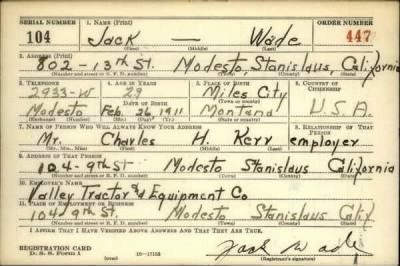 SERIAL NUMBER 1. NAME (Print) ORDER NUMBER
104 Jack — Wade 447
(First) (Middle) (Last)
2. ADDRESS (Print)
802-13th St. Modesto, Stanislaus, California
(Number and street or R. F. D. number) (Town) (County) (State)
3. TELEPHONE 4. AGE IN YEARS 5. PLACE OF BIRTH 6. COUNTRY OF CITIZENSHIP
2933-W 29 Miles City
DATE OF BIRTH (Town or county)
Modesto Feb. 26, 1911 Montana U.S.A.
(Exchange) (Number) (Mo.) (Day) (Yr.) (State or country)
7. NAME OF PERSON WHO WILL ALWAYS KNOW YOUR ADDRESS 8. RELATIONSHIP OF THAT PERSON
Mr. Charles H. Kerr employer
(Mr., Mrs., Miss) (First) (Middle) (Last)
9. ADDRESS OF THAT PERSON
104-9th St Modesto Stanislaus California
(Number and street or R. F. D. number) (Town) (County) (State)
10. EMPLOYER'S NAME
Valley Tractor & Equipment Co
11. PLACE OF EMPLOYMENT OR BUSINESS
104 9th St. Modesto Stanislaus Calif
(Number and street or R. F. D. number) (Town) (County) (State)
I AFFIRM THAT I HAVE VERIFIED ABOVE ANSWERS AND THAT THEY ARE TRUE.
REGISTRATION CARD
D. S. S. Form 1 16-17105 Jack Wade
(Registrant's signature)